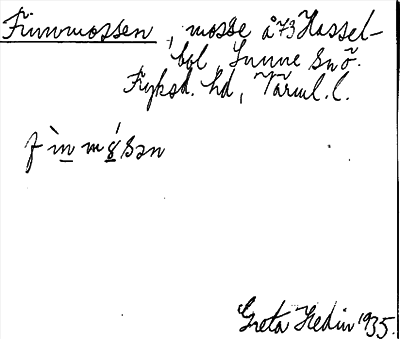 Finnmossen, mosse å 73 Hassel-
bol, Sunne sn ö.
Fryksd. hd, Värml. l.
fìnmósən
Greta Hedin 1935.